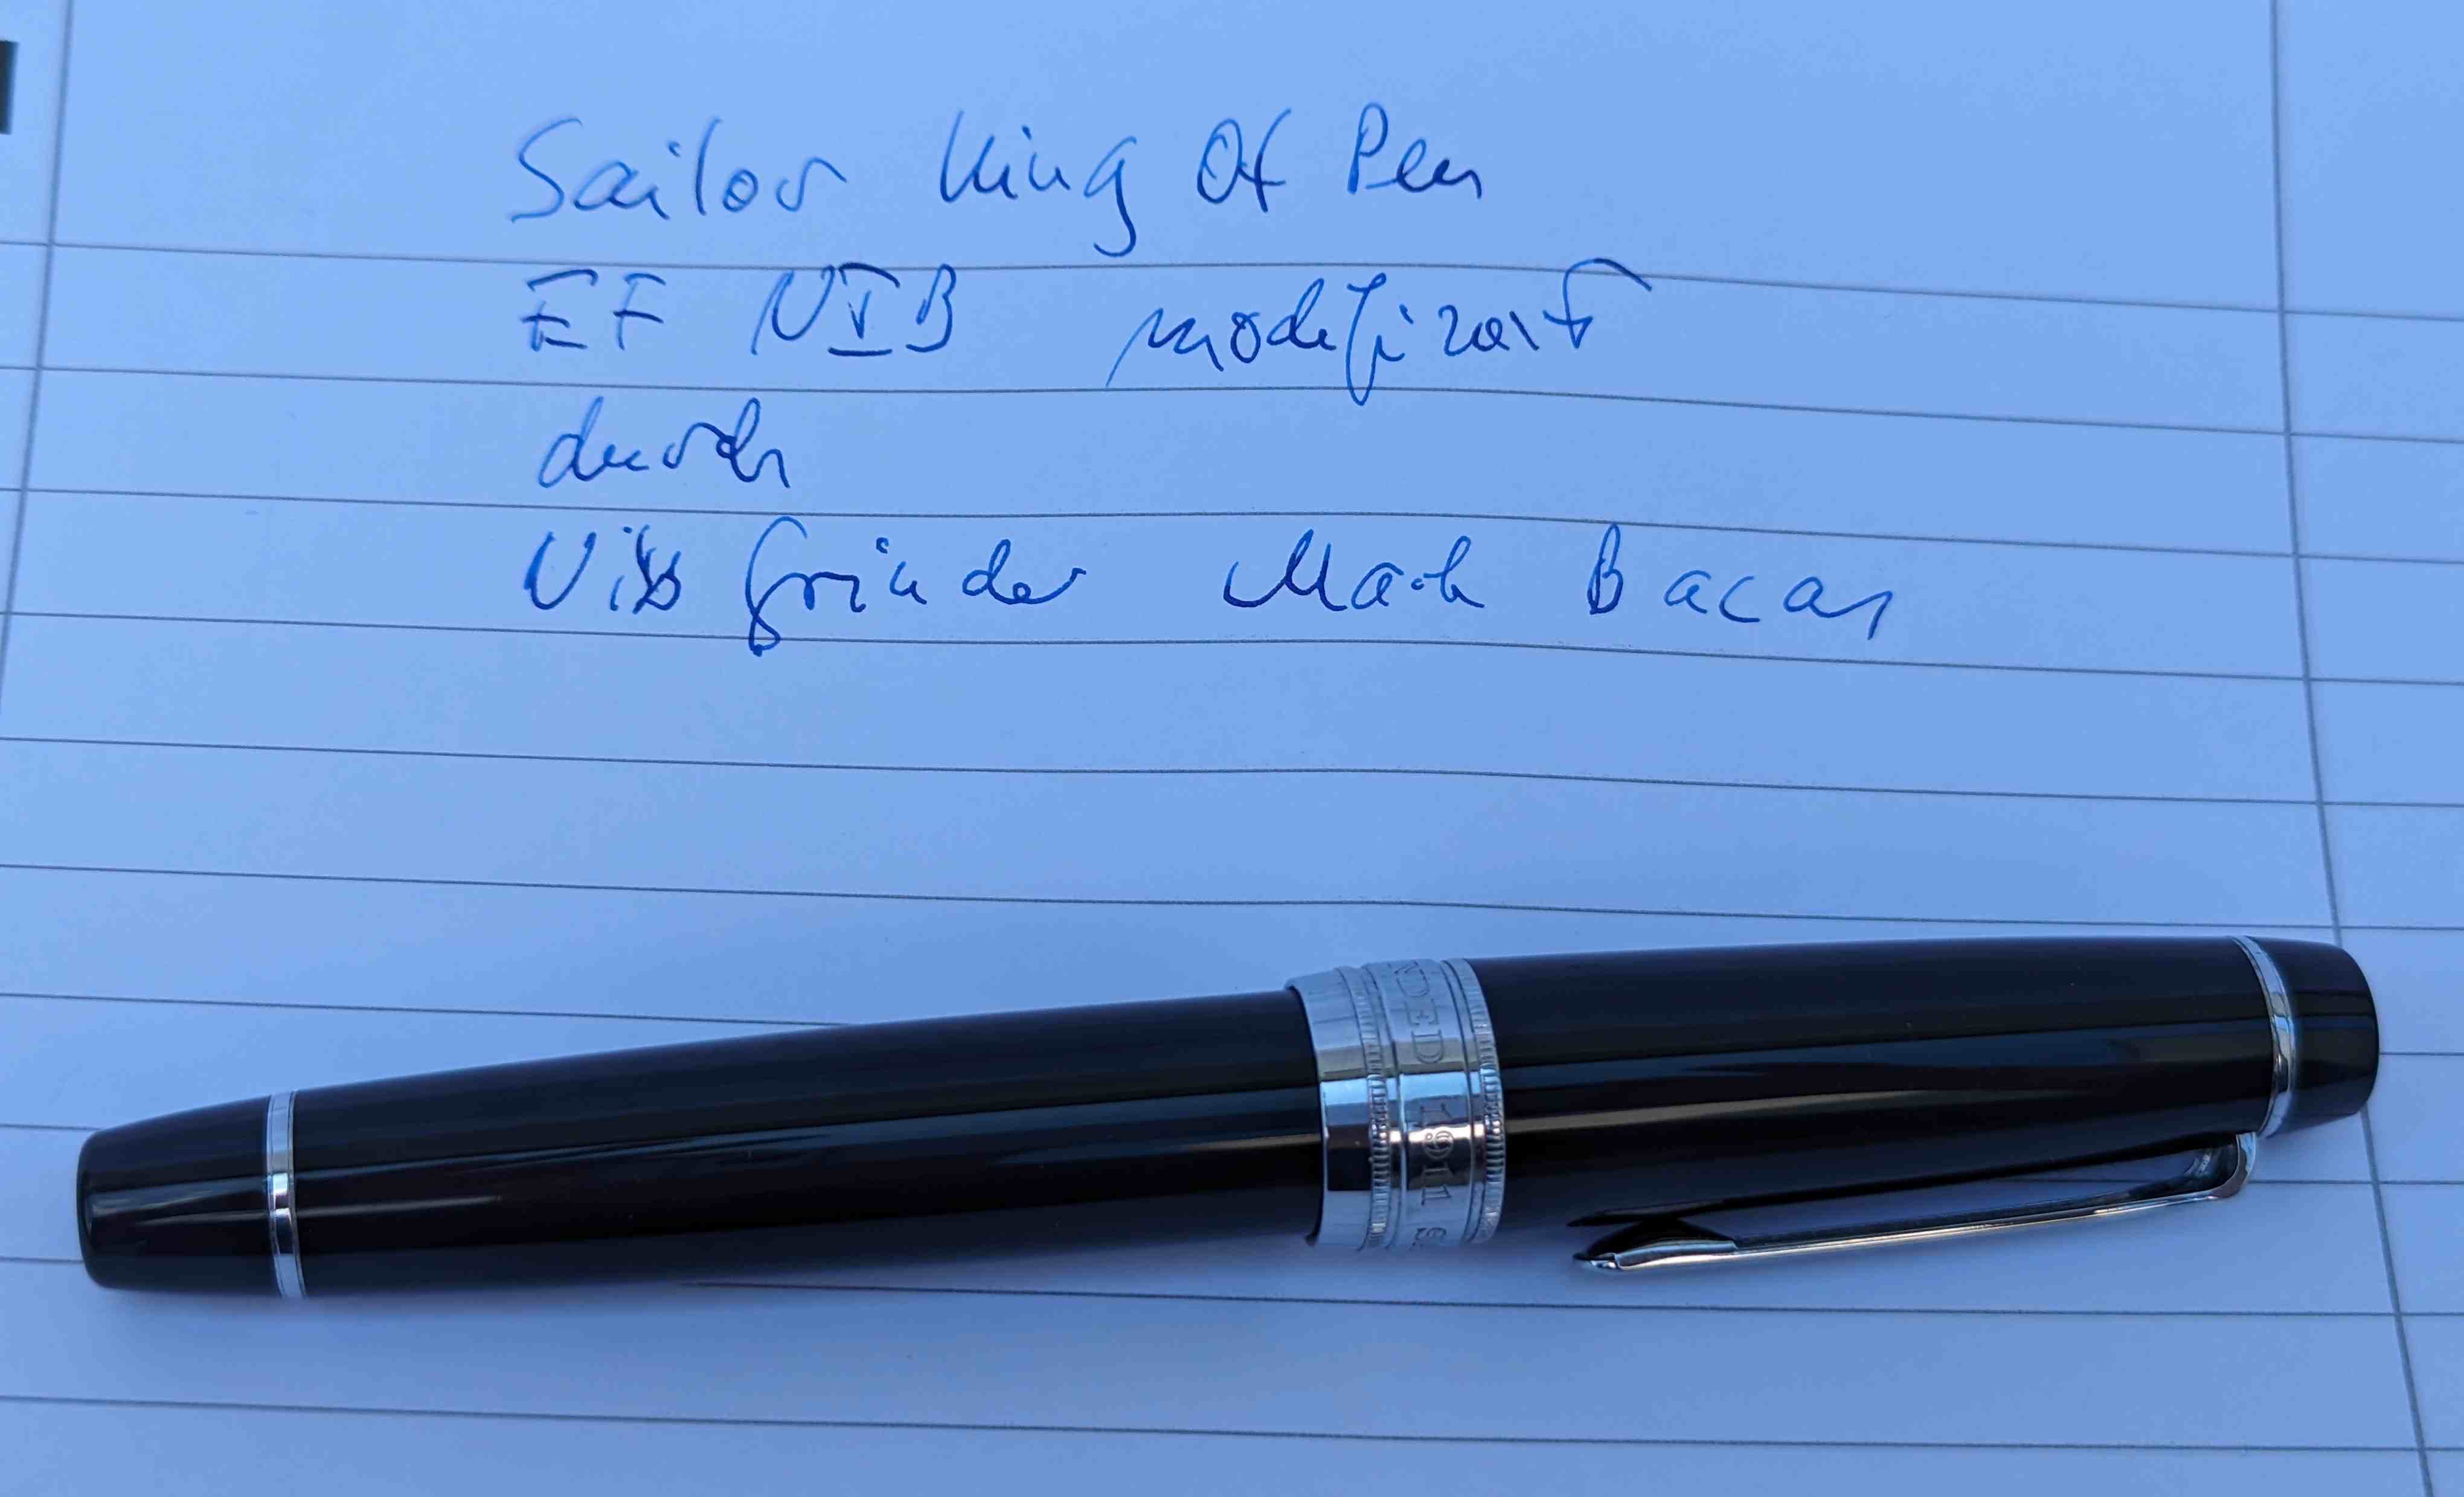 Sailor King Of Pen
EF NIB modifiziert
durch
Nibgrinder Mark Bacas
NDED 1911 S